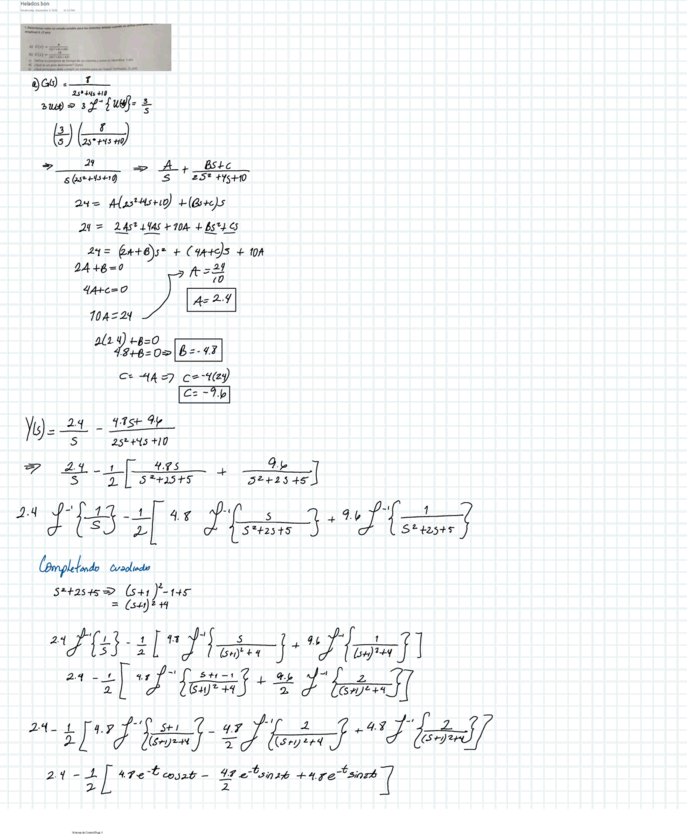 Helados bon
a) G(s) = 8 / (2s²+4s+10)
3u(t) ⇒ 3 ℒ⁻{u(t)} = 3/s
(3/s) (8 / (2s²+4s+10))
⇒ 24 / (s(2s²+4s+10)) ⇒ A/s + (Bs+C) / (2s²+4s+10)
24 = A(2s²+4s+10) + (Bs+C)s
24 = 2As²+4As+10A + Bs²+Cs
24 = (2A+B)s² + (4A+C)s + 10A
2A+B=0
A = 24/10
4A+C=0
A = 2.4
10A=24
2(2.4)+B=0
4.8+B=0 ⇒ B=-4.8
C= -4A ⇒ C=-4(24)
C= -9.6
Y(s) = 2.4/s - (4.8s+9.6) / (2s²+4s+10)
⇒ 2.4/s - 1/2 [ 4.8s / (s²+2s+5) + 9.6 / (s²+2s+5) ]
2.4 ℒ⁻¹{1/s} - 1/2 [ 4.8 ℒ⁻¹{ s / (s²+2s+5) } + 9.6 ℒ⁻¹{ 1 / (s²+2s+5) }
Completando cuadrado
s²+2s+5 ⇒ (s+1)²-1+5
= (s+1)²+4
2.4 ℒ⁻¹{1/s} - 1/2 [ 4.8 ℒ⁻¹{ s / ((s+1)²+4) } + 9.6 ℒ⁻¹{ 1 / ((s+1)²+4) } ]
2.4 - 1/2 [ 4.8 ℒ⁻¹{ (s+1-1) / ((s+1)²+4) } + 9.6/2 ℒ⁻¹{ 2 / ((s+1)²+4) } ]
2.4 - 1/2 [ 4.8 ℒ⁻¹{ (s+1) / ((s+1)²+4) } - 4.8/2 ℒ⁻¹{ 2 / ((s+1)²+4) } + 4.8 ℒ⁻¹{ 2 / ((s+1)²+4) } ]
2.4 - 1/2 [ 4.8e⁻ᵗcos2t - 4.8/2 e⁻ᵗsin2t + 4.8e⁻ᵗsin2t ]